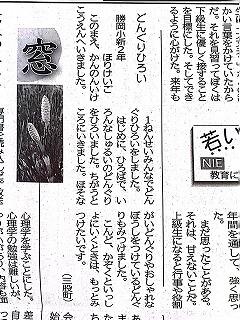 かい言葉をかけていたから
だ。それを見習ってぼくは
下級生に優しく接すること
を目標にした。そしてでき
るように心がけた。来年も
若い
NIE
教育に
年間を通して、強く思っ
まだ思ったことがある。
それは、甘えないことだ。
上級生になると行事や役割
窓
どんぐりひろい
勝岡小新2年
ほりけいご
このまえ、かんのんいけ
こうえんへいきました。
1ねんせいみんなでどん
ぐりひろいをしました。
はじめに、ひろばで、い
ろんなしゅるいのどんぐり
をひろいました。ちがうと
ころにいきました。ほそな
がいどんぐりやおしゃれな
ぼうしをつけているどんぐ
りもみつけました。
こんど、かぞくといっし
ょにいくときは、もっとみ
つけたいです。
(三股町)
心理学を学ぶことにした。
心理学の勉強は難しいが、